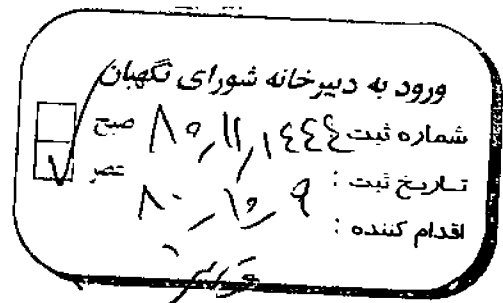 ورود به دبیرخانه شورای نگهبان
شماره ثبت ۸۰٫۱۱٫۱۴۴۴ صبح
تاریخ ثبت : ۸۰٫۱۰٫۹ عصر
اقدام کننده :